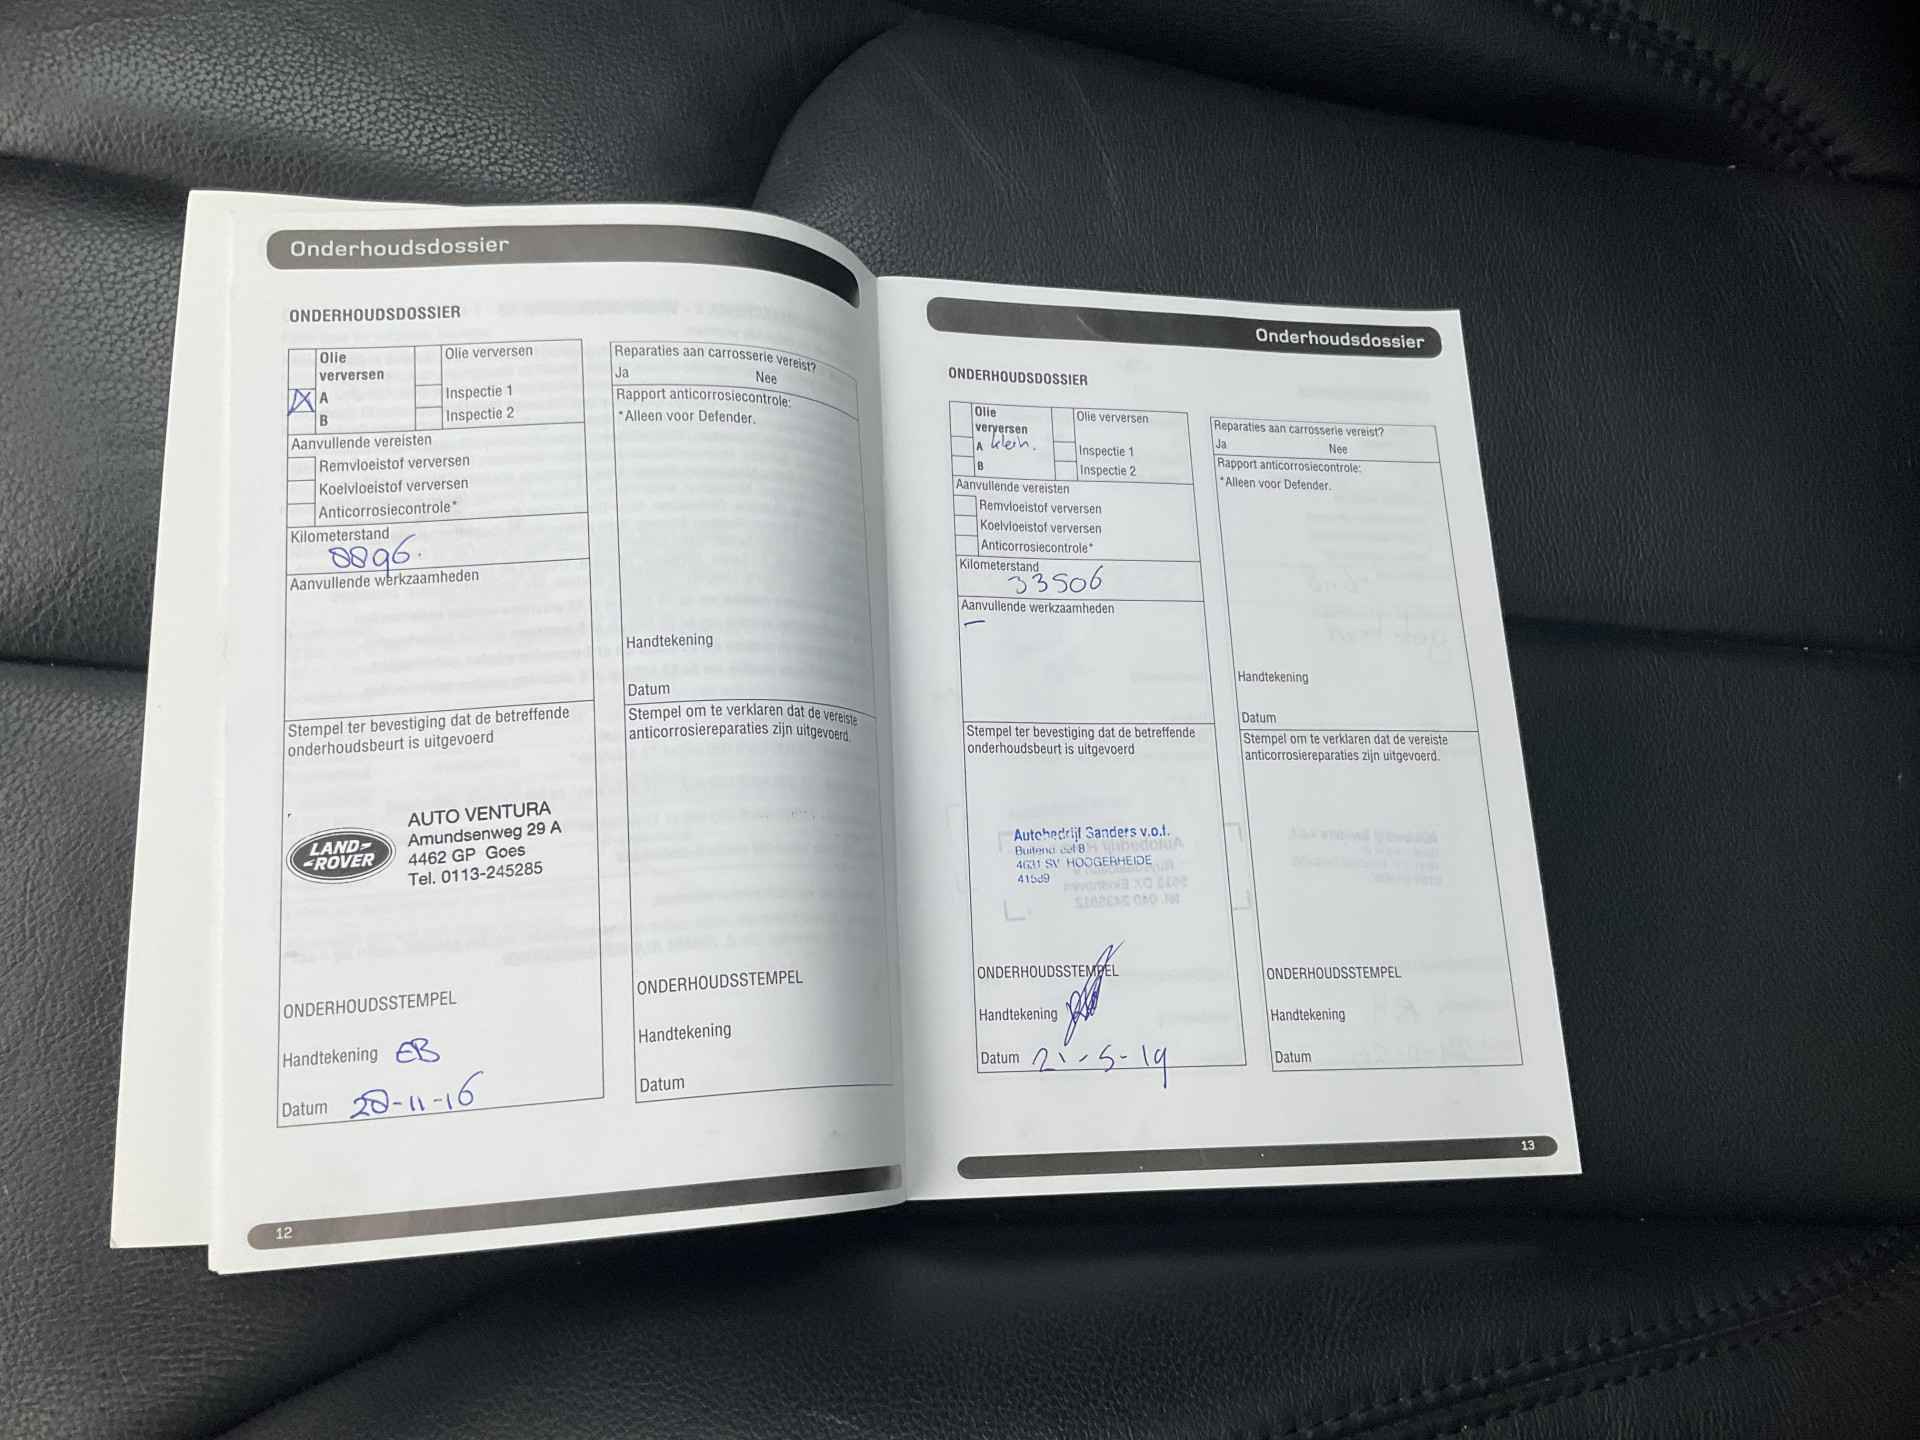 Onderhoudsdossier
ONDERHOUDSDOSSIER
Olie verversen
Olie
verversen
A
B
Inspectie 1
Inspectie 2
Aanvullende vereisten
Remvloeistof verversen
Koelvloeistof verversen
Anticorrosiecontrole*
Kilometerstand
8896.
Aanvullende werkzaamheden
Stempel ter bevestiging dat de betreffende
onderhoudsbeurt is uitgevoerd
LAND-
-ROVER
AUTO VENTURA
Amundsenweg 29 A
4462 GP Goes
Tel. 0113-245285
ONDERHOUDSSTEMPEL
Handtekening EB
Datum 28-11-16
Reparaties aan carrosserie vereist?
Ja Nee
Rapport anticorrosiecontrole:
*Alleen voor Defender.
Handtekening
Datum
Stempel om te verklaren dat de vereiste
anticorrosiereparaties zijn uitgevoerd.
ONDERHOUDSSTEMPEL
Handtekening
Datum
12
Onderhoudsdossier
ONDERHOUDSDOSSIER
Olie
verversen
A klein.
B
Olie verversen
Inspectie 1
Inspectie 2
Aanvullende vereisten
Remvloeistof verversen
Koelvloeistof verversen
Anticorrosiecontrole*
Kilometerstand
33506
Aanvullende werkzaamheden
Stempel ter bevestiging dat de betreffende
onderhoudsbeurt is uitgevoerd
Autobedrijf Sanders v.o.f.
4631 SV HOOGERHEIDE
ONDERHOUDSSTEMPEL
Handtekening
Datum 21-5-19
Reparaties aan carrosserie vereist?
Ja Nee
Rapport anticorrosiecontrole:
*Alleen voor Defender.
Handtekening
Datum
Stempel om te verklaren dat de vereiste
anticorrosiereparaties zijn uitgevoerd.
ONDERHOUDSSTEMPEL
Handtekening
Datum
13